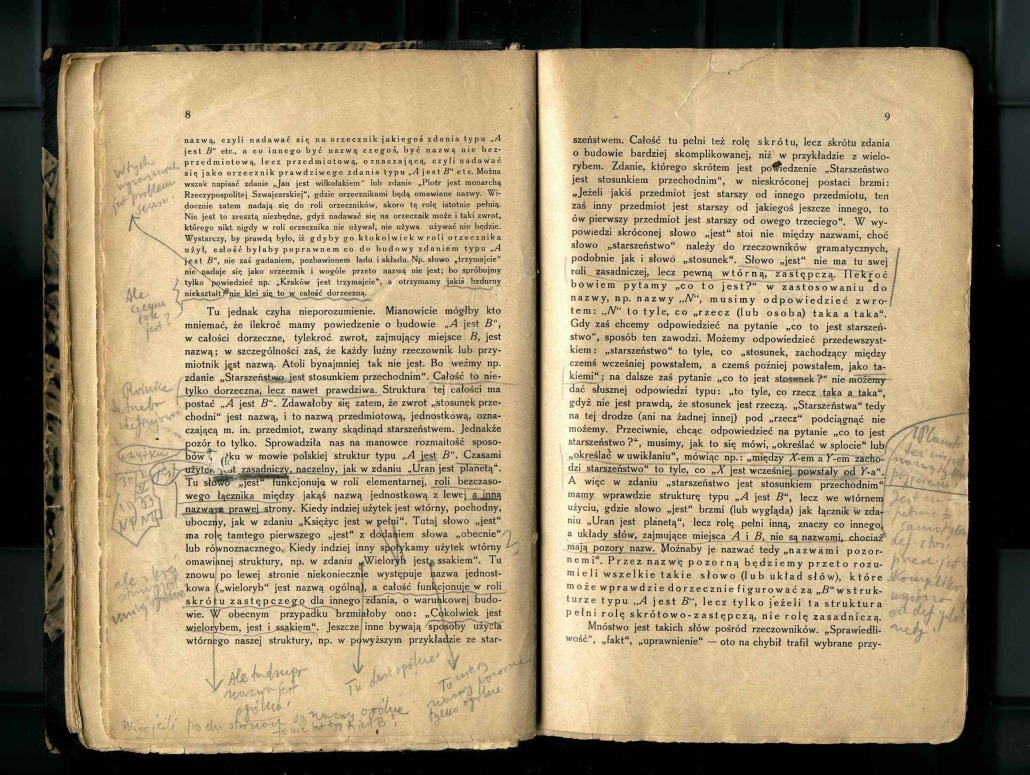 8
nazwą, czyli nadawać się na orzecznik jakiegoś zdania typu „A
jest B" etc., a co innego być nazwą czegoś, być nazwą nie bez-
przedmiotową, lecz przedmiotową, oznaczającą, czyli nadawać
się jako orzecznik prawdziwego zdania typu „A jest B" etc. Można
wszak napisać zdanie „Jan jest wilkołakiem" lub zdanie „Piotr jest monarchą
Rzeczypospolitej Szwajcarskiej", gdzie orzecznikami będą omawiane nazwy. Wi-
docznie zatem nadają się do roli orzeczników, skoro tę rolę istotnie pełnią.
Nie jest to zresztą niezbędne, gdyż nadawać się na orzecznik może i taki zwrot,
którego nikt nigdy w roli orzecznika nie używał, nie używa i używać nie będzie.
Wystarczy, by prawdą było, iż gdyby go ktokolwiek w roli orzecznika
użył, całość byłaby poprawnem co do budowy zdaniem typu „A
jest B", nie zaś gadaniem, pozbawionem ładu i składu. Np. słowo „trzymajcie"
nie nadaje się jako orzecznik i wogóle przeto nazwą nie jest; bo spróbujmy
tylko powiedzieć np. „Kraków jest trzymajcie", a otrzymamy jakiś bzdurny
niekształt: nie klei się to w całość dorzeczną.
Tu jednak czyha nieporozumienie. Mianowicie mógłby kto
mniemać, że ilekroć mamy powiedzenie o budowie „A jest B",
w całości dorzeczne, tylekroć zwrot, zajmujący miejsce B, jest
nazwą; w szczególności zaś, że każdy luźny rzeczownik lub przy-
miotnik jest nazwą. Atoli bynajmniej tak nie jest. Bo weźmy np.
zdanie „Starszeństwo jest stosunkiem przechodnim". Całość to nie-
tylko dorzeczna, lecz nawet prawdziwa. Struktura tej całości ma
postać „A jest B". Zdawałoby się zatem, że zwrot „stosunek prze-
chodni" jest nazwą, i to nazwą przedmiotową, jednostkową, ozna-
czającą m. in. przedmiot, zwany skądinąd starszeństwem. Jednakże
pozór to tylko. Sprowadziła nas na manowce rozmaitość sposo-
bów użytku w mowie polskiej struktur typu „A jest B". Czasami
użytek jest zasadniczy, naczelny, jak w zdaniu „Uran jest planetą".
Tu słowo „jest" funkcjonuje w roli elementarnej, roli bezczaso-
wego łącznika między jakąś nazwą jednostkową z lewej a inną
nazwą z prawej strony. Kiedy indziej użytek jest wtórny, pochodny,
uboczny, jak w zdaniu „Księżyc jest w pełni". Tutaj słowo „jest"
ma rolę tamtego pierwszego „jest" z dodaniem słowa „obecnie"
lub równoznacznego. Kiedy indziej inny spotykamy użytek wtórny
omawianej struktury, np. w zdaniu „Wieloryb jest ssakiem". Tu
znowu po lewej stronie niekoniecznie występuje nazwa jednost-
kowa („wieloryb" jest nazwą ogólną), a całość funkcjonuje w roli
skrótu zastępczego dla innego zdania, o warunkowej budo-
wie. W obecnym przypadku brzmiałoby ono: „Cokolwiek jest
wielorybem, jest i ssakiem". Jeszcze inne bywają sposoby użycia
wtórnego naszej struktury, np. w powyższym przykładzie ze star-
Ale
Ale żadnego
nazwa jest
ogólna!
Tu dwie ogólne!
9
szeństwem. Całość tu pełni też rolę skrótu, lecz skrótu zdania
o budowie bardziej skomplikowanej, niż w przykładzie z wielo-
rybem. Zdanie, którego skrótem jest powiedzenie „Starszeństwo
jest stosunkiem przechodnim", w nieskróconej postaci brzmi:
„Jeżeli jakiś przedmiot jest starszy od innego przedmiotu, ten
zaś inny przedmiot jest starszy od jakiegoś jeszcze innego, to
ów pierwszy przedmiot jest starszy od owego trzeciego". W wy-
powiedzi skróconej słowo „jest" stoi nie między nazwami, choć
słowo „starszeństwo" należy do rzeczowników gramatycznych,
podobnie jak i słowo „stosunek". Słowo „jest" nie ma tu swej
roli zasadniczej, lecz pewną wtórną, zastępczą. Ilekroć
bowiem pytamy „co to jest?" w zastosowaniu do
nazwy, np. nazwy „N", musimy odpowiedzieć zwro-
tem: „N" to tyle, co „rzecz (lub osoba) taka a taka".
Gdy zaś chcemy odpowiedzieć na pytanie „co to jest starszeń-
stwo", sposób ten zawodzi. Możemy odpowiedzieć przedewszyst-
kiem: „starszeństwo" to tyle, co „stosunek, zachodzący między
czemś wcześniej powstałem, a czemś później powstałem, jako ta-
kiemi"; na dalsze zaś pytanie „co to jest stosunek?" nie możemy
dać słusznej odpowiedzi typu: „to tyle, co rzecz taka a taka",
gdyż nie jest prawdą, że stosunek jest rzeczą. „Starszeństwa" tedy
na tej drodze (ani na żadnej innej) pod „rzecz" podciągnąć nie
możemy. Przeciwnie, chcąc odpowiedzieć na pytanie „co to jest
starszeństwo?", musimy, jak to się mówi, „określać w splocie" lub
„określać w uwikłaniu", mówiąc np.: „między X-em a Y-em zacho-
dzi starszeństwo" to tyle, co „X jest wcześniej powstały od Y-a".
A więc w zdaniu „starszeństwo jest stosunkiem przechodnim"
mamy wprawdzie strukturę typu „A jest B", lecz we wtórnem
użyciu, gdzie słowo „jest" brzmi (lub wygląda) jak łącznik w zda-
niu „Uran jest planetą", lecz rolę pełni inną, znaczy co innego,
a układy słów, zajmujące miejsca A i B, nie są nazwami, chociaż
mają pozory nazw. Możnaby je nazwać tedy „nazwami pozor-
nemi". Przez nazwę pozorną będziemy przeto rozu-
mieli wszelkie takie słowo (lub układ słów), które
może wprawdzie dorzecznie figurować za „B" w struk-
turze typu „A jest B", lecz tylko jeżeli ta struktura
pełni rolę skrótowo-zastępczą, nie rolę zasadniczą.
Mnóstwo jest takich słów pośród rzeczowników. „Sprawiedli-
wość", „fakt", „uprawnienie" — oto na chybił trafił wybrane przy-